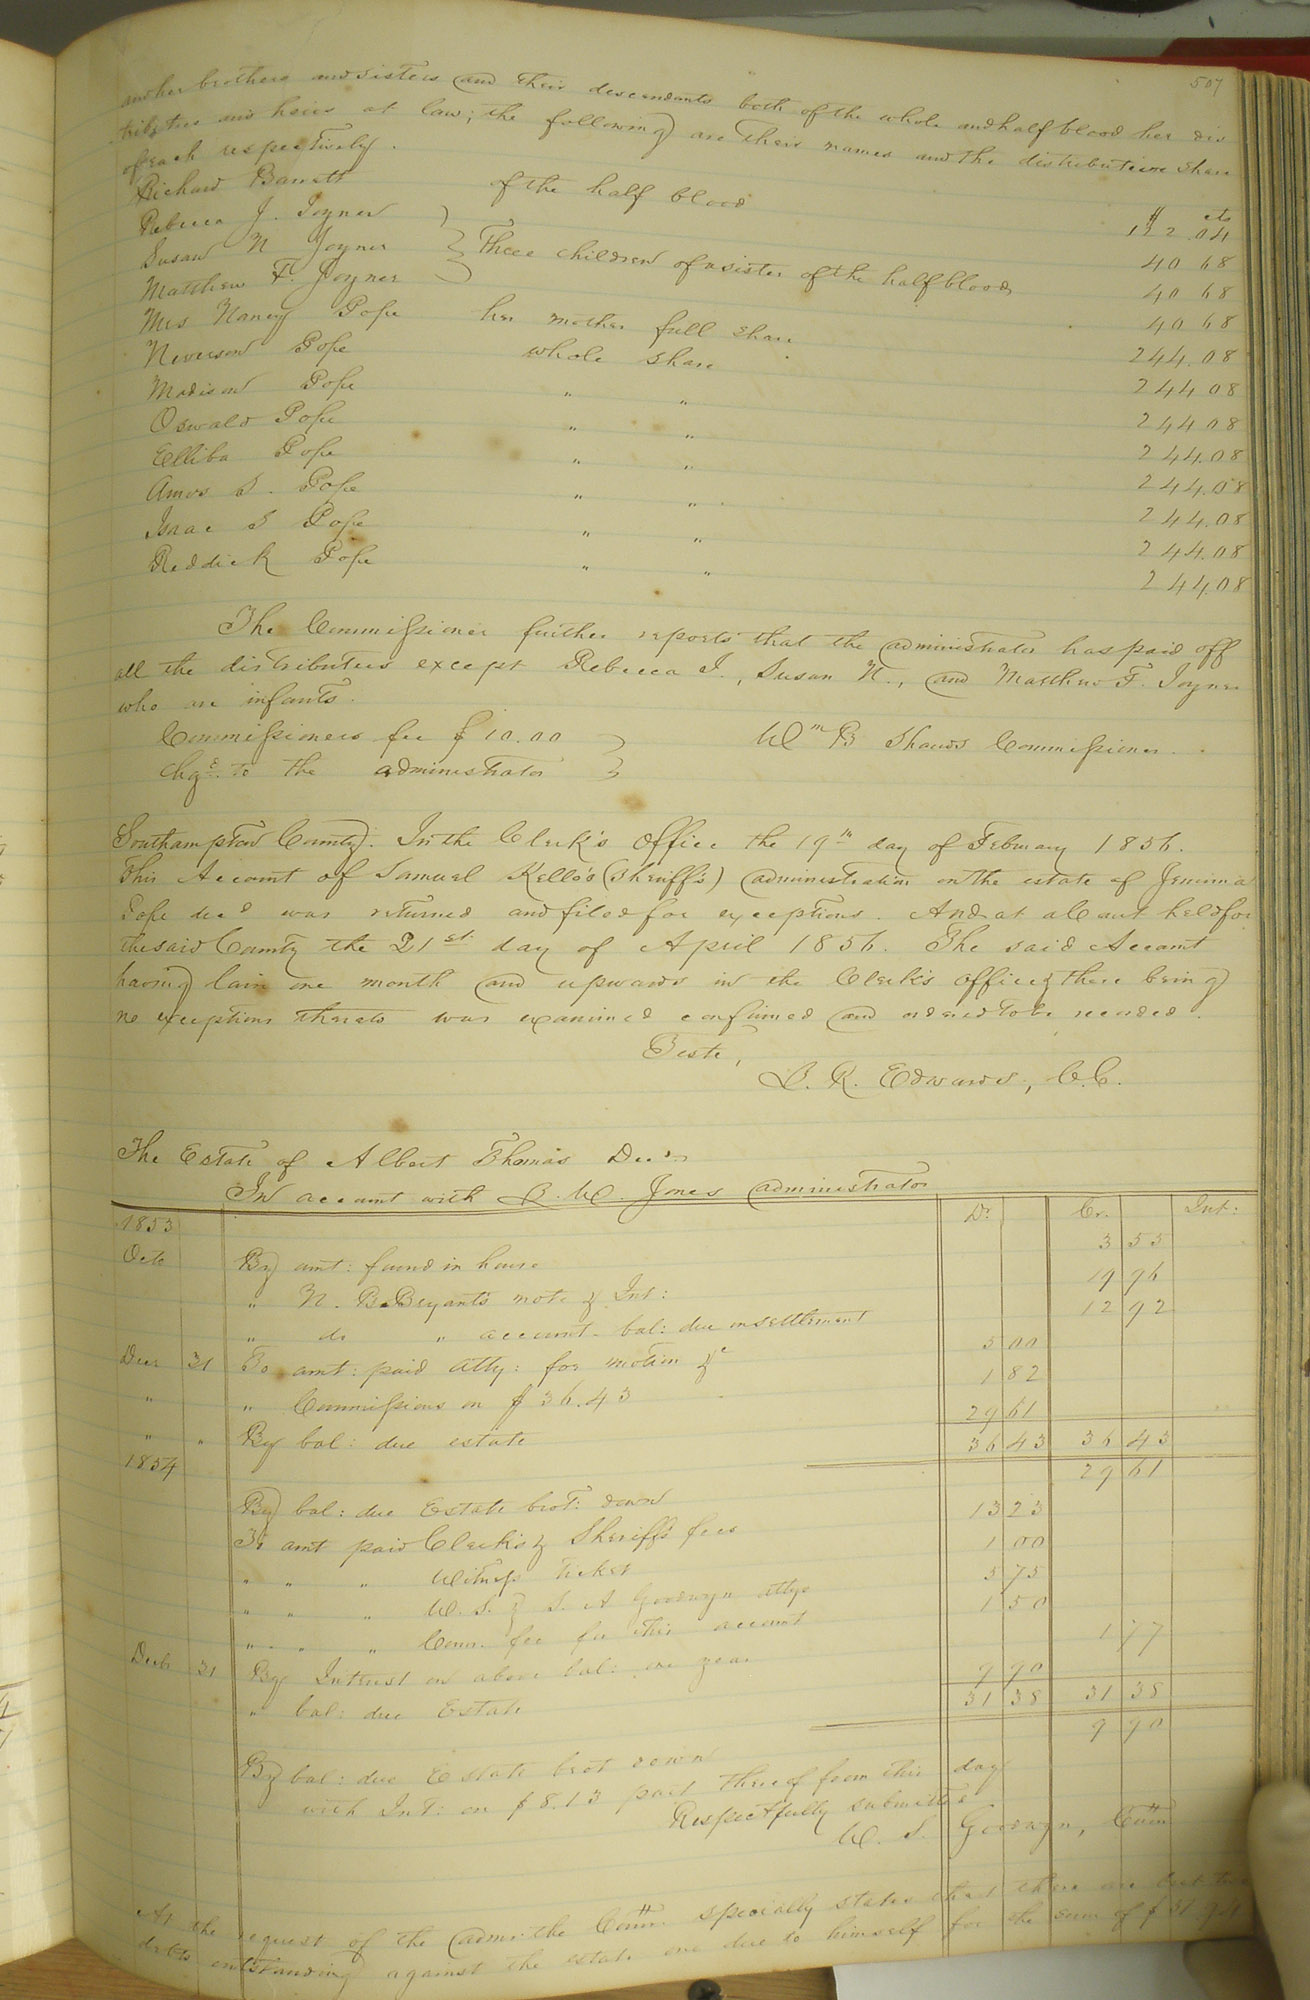 507
and her brothers and sisters and their descendants both of the whole and half blood her dis
tributees and heirs at law; the following are their names and the distributive share
of each respectively.
$ cts
Richard Barrett of the half blood 122.04
Rebecca J. Joyner 40 68
Susan N Joyner } Three children of a sister of the half blood 40 68
Matthew F. Joyner 40 68
Mrs Nancy Pope her mother full share 244.08
Neverson Pope whole share 244 08
Madison Pope " " 244 08
Oswald Pope " " 244.08
Elliba Pope " " 244.08
Amos S. Pope " " 244.08
Isaac S Pope " " 244.08
Reddick Pope " " 244.08
The Commissioner further reports that the administrator has paid off
all the distributees except Rebecca J., Susan N., and Matthew F. Joyner
who are infants.
Commissioners fee $10.00 } Wm B Shands Commissioner.
chgd. to the administrator }
Southampton County. In the Clerk's Office the 19th day of February 1856.
This Account of Samuel Kello's (Sheriff's) administration on the estate of Jemima
Pope decd was returned and filed for exceptions. And at a Court held for
the said County the 21st day of April 1856. The said Account
having lain one month and upwards in the Clerk's office & there being
no exceptions thereto was examined confirmed and ordered to be recorded.
Teste,
L. R. Edwards, C.C.
The Estate of Albert Thomas Decd
In account with L. W. Jones administrator
1853 Dr. Cr. Int:
Octo By amt: found in house 3 55
" N. B. Bryant's note & Int: 19 96
" do " account - bal: due on settlement 12 92
Decr 31 To amt: paid atty: for motion &c 5 00
" " Commissions on $36.43 1 82
" " By bal: due estate 29 61
36 43 36 43
1854 By bal: due Estate brot: down 29 61
To amt paid Clerk's & Sheriff's fees 13 23
" " " Witness ticket 1 00
" " " W. S. & S. A Goodwyn attys 5 75
" " " Comr. fee for this account 1 50
Decb 31 By Interest on above bal: one year 1 77
" bal: due Estate 9 90
31 38 31 38
By bal: due Estate brot down 9 90
with Int: on $8.13 part thereof from this day
Respectfully submitted
W. S. Goodwyn, Comr
At the request of the admr. the Comr. specially states that there are but two
debts outstanding against the estate one due to himself for the sum of $31 94